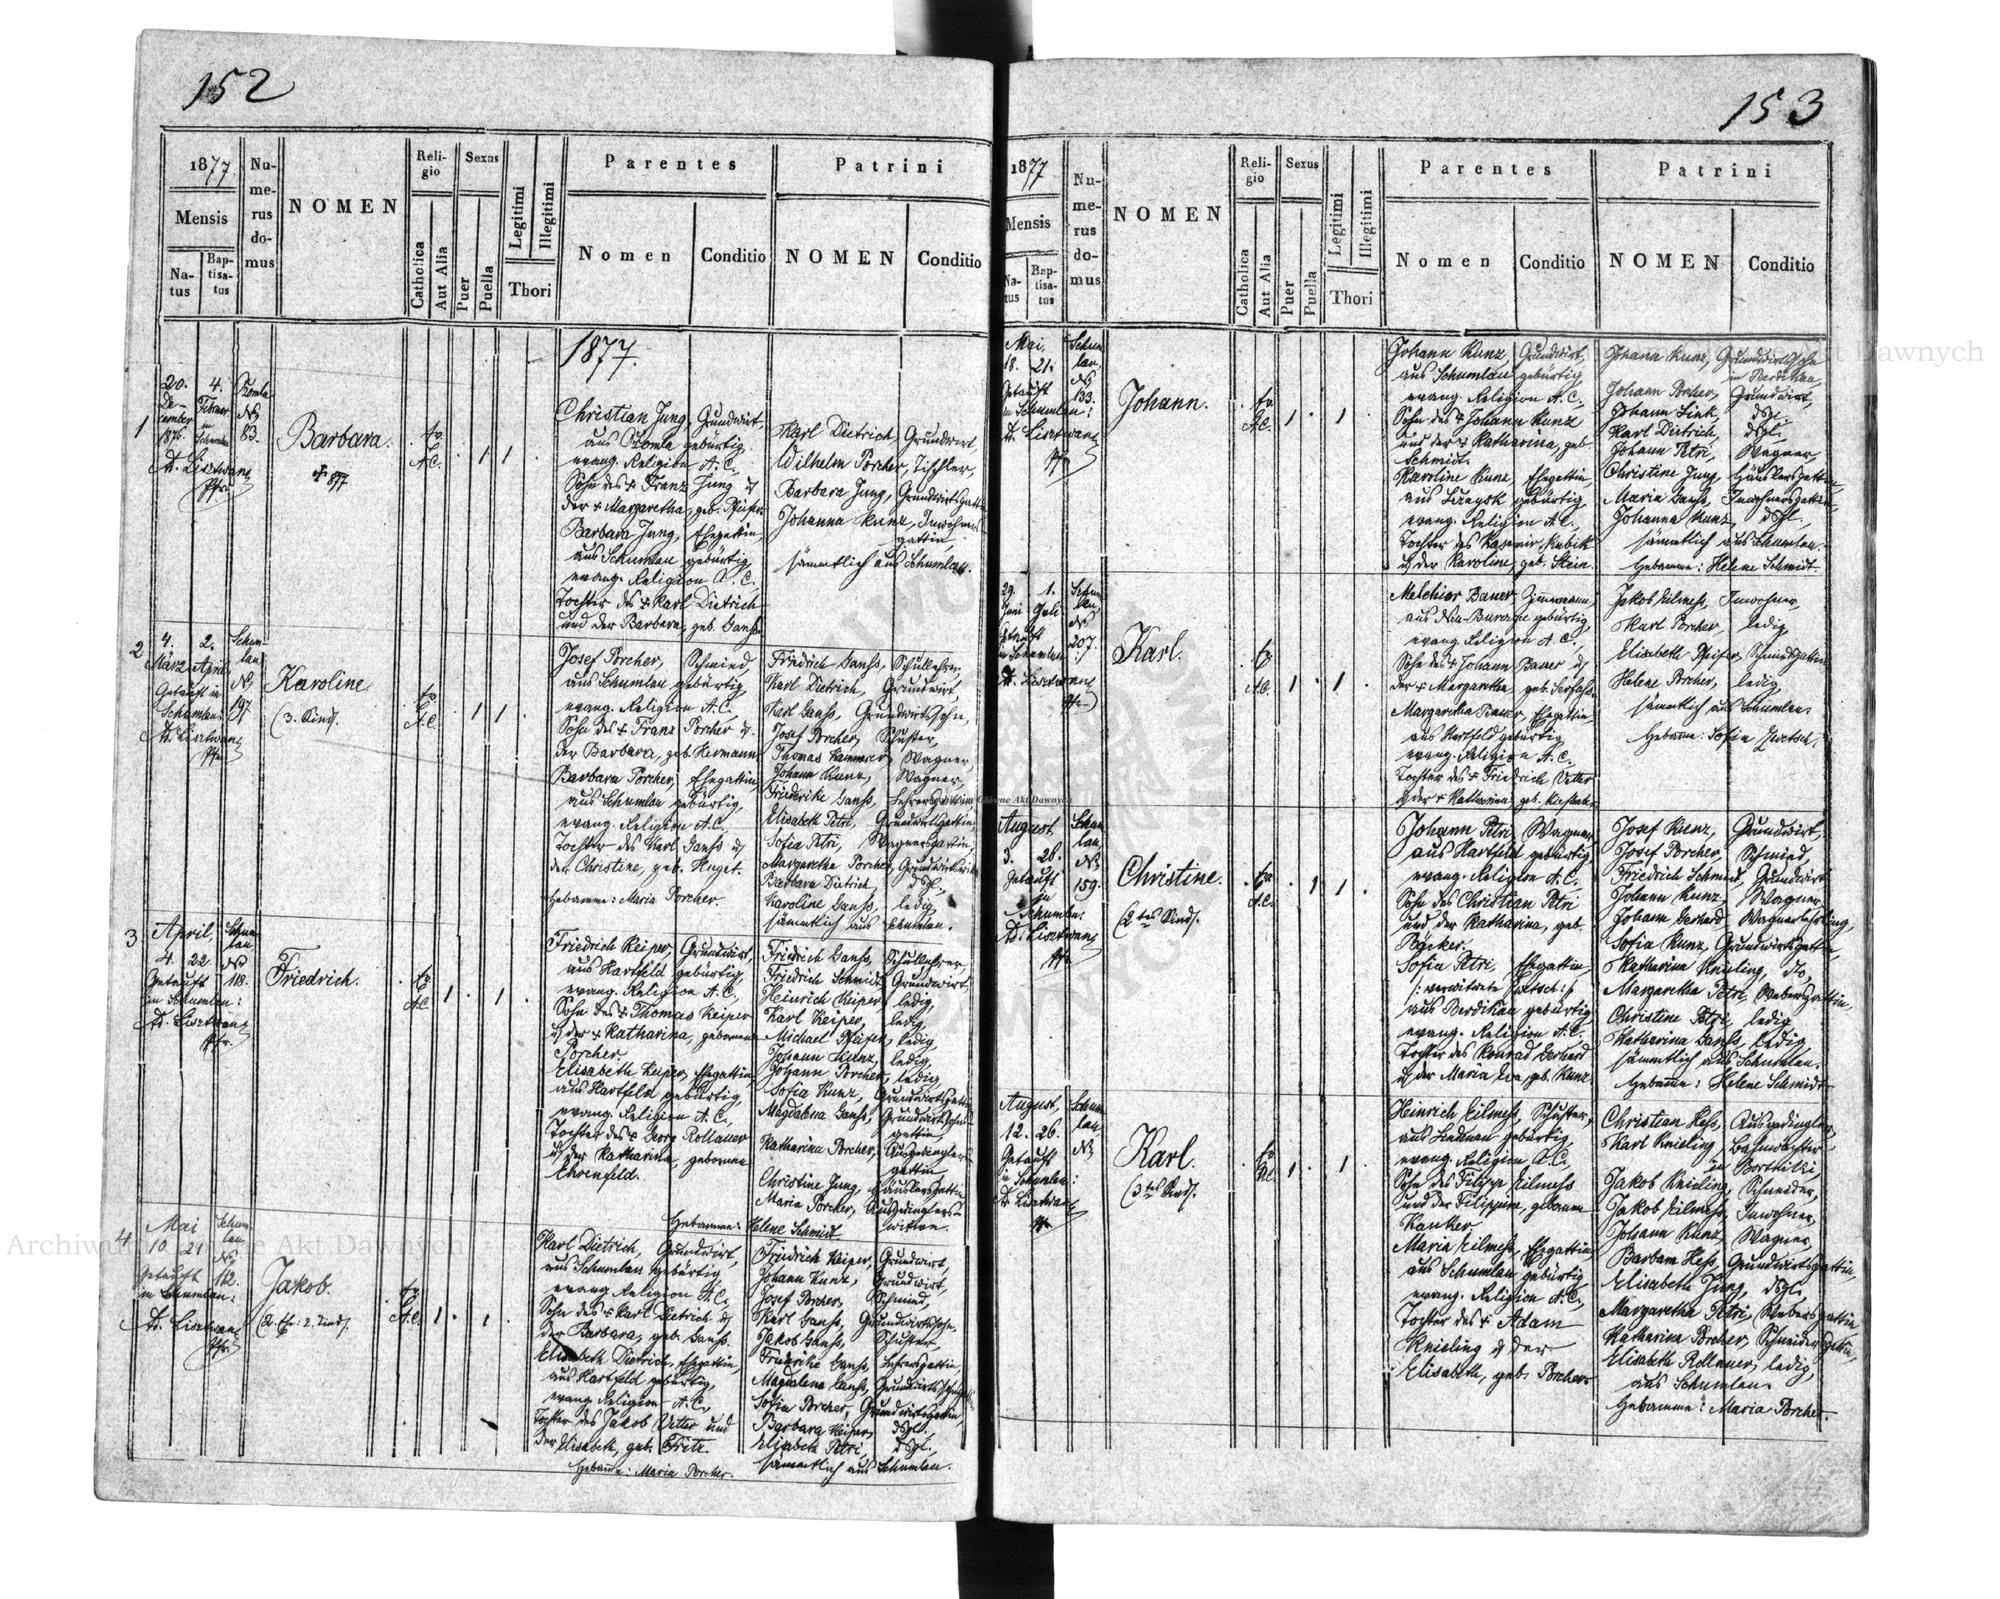 152
1877
Mensis
Na-
tus
Bap-
tisa-
tus
Nu-
me-
rus
do-
mus
NOMEN
Reli-
gio
Catholica
Aut Alia
Sexus
Puer
Puella
Legitimi
Illegitimi
Thori
Parentes
Nomen
Conditio
Patrini
NOMEN
Conditio
1877.
1
20. 4.
De- Februar
cember in
1876. Schumlau
A. Lisztwan
Pfr.
No
83.
Barbara.
Ev.
A.C.
1 1
Christian Jung, Grundwirt,
aus Ottomla gebürtig,
evang. Religion A. C.,
Sohn des + Franz Jung u
der + Margaretha, geb. Pfeifer
Barbara Jung, Ehegattin,
aus Schumlau gebürtig,
evang. Religion A. C.
Tochter des + Karl Dietrich
und der Barbara, geb. Ganss.
Karl Dietrich, Grundwirt,
Wilhelm Porcher, Tischler,
Barbara Jung, Grundwirtsgattin
Johanna Kunz, Inwohners-
gattin,
sämmtlich aus Schumlau.
2
4. 2.
März April
Getauft in
Schumlau:
A. Lisztwan
Pfr.
Schum-
lau
No
197
Karoline
(3. Kind).
Ev.
A.C.
1 1
Josef Porcher, Schmied,
aus Schumlau gebürtig,
evang. Religion A. C.
Sohn des + Franz Porcher u.
der Barbara, geb. Hermann
Barbara Porcher, Ehegattin,
aus Schumlau gebürtig,
evang. Religion A. C.
Tochter des Karl Ganss u
der Christine, geb. Huget.
Hebamme: Maria Porcher.
Friedrich Ganss, Schullehrer,
Karl Dietrich, Grundwirt,
Karl Ganss, Grundwirtssohn,
Josef Porcher, Schuster,
Thomas Kammerer, Wagner,
Johann Kunz, Wagner,
Friederike Ganss, Lehrersgattin
Elisabeth Petri, Grundwirtsgattin,
Sofia Petri, Wagnersgattin,
Margaretha Porcher,
Barbara Dietrich, dsgl.,
Karoline Ganss, ledig,
sämmtlich aus Schumlau.
3
April,
4. 22.
Getauft
in Schumlau:
A. Lisztwan
Pfr.
Schum-
lau
No
118.
Friedrich.
Ev.
A.C.
1 1
Friedrich Keiper, Grundwirt,
aus Hartfeld gebürtig,
evang. Religion A. C.,
Sohn des + Thomas Keiper
u der + Katharina, geborenen
Porcher.
Elisabeth Keiper, Ehegattin,
aus Hartfeld gebürtig,
evang. Religion A. C.,
Tochter des + Georg Rollauer
u der Katharina, geborenen
Ehrenfeld.
Hebamme: Helene Schmidt
Friedrich Ganss, Schullehrer
Friedrich Schmidt, Grundwirt
Heinrich Keiper, ledig,
Karl Keiper, ledig,
Michael Pfeifer, ledig,
Johann Kunz, ledig,
Johann Porcher, ledig,
Sofia Kunz, Grundwirtsgattin
Magdalena Ganss, Grundwirtssohns-
gattin,
Katharina Porcher, Ausgedinglers-
gattin
Christine Jung, Häuslersgattin
Maria Porcher, Ausgedinglers-
witwe.
4
Mai
10. 21
Getauft
in Schumlau:
A. Lisztwan
Pfr.
Schum-
lau,
No
112.
Jakob.
Ev.
A.C.
1 1
Karl Dietrich, Grundwirt,
aus Schumlau gebürtig,
evang. Religion A. C.,
Sohn des + Karl Dietrich u
der Barbara, geb. Ganss.
Elisabeth Dietrich, Ehegattin,
aus Hartfeld gebürtig,
evang. Religion A. C.,
Tochter des Jakob Veter und
der Elisabeth, geb. Fritz.
Hebamme: Maria Porcher.
Friedrich Keiper, Grundwirt,
Johann Kunz, Grundwirt,
Josef Porcher, Schmied,
Karl Ganss, Grundwirtssohn,
Jakob Ganss, Schuster,
Friedrike Ganss, Lehrersgattin,
Magdalena Ganss,
Sofia Porcher, Grundwirtsgattin,
Barbara Keiper, dsgl.,
Elisabeth Petri, dsgl.,
sämmtlich aus Schumlau.
153
1877
Mensis
Na-
tus
Bap-
tisa-
tus
Nu-
me-
rus
do-
mus
NOMEN
Reli-
gio
Catholica
Aut Alia
Sexus
Puer
Puella
Legitimi
Illegitimi
Thori
Parentes
Nomen
Conditio
Patrini
NOMEN
Conditio
Mai,
18. 21.
Getauft
in Schumlau:
A. Lisztwan
Pfr.
Schum-
lau,
No
133.
Johann.
Ev.
A.C.
1 1
Johann Kunz, Grundwirt,
aus Schumlau gebürtig,
evang. Religion A. C.,
Sohn des + Johann Kunz
und der + Katharina, geb.
Schmidt.
Karoline Kunz, Ehegattin,
evang. Religion A. C.,
Tochter des Kasimir Kubik
u der Karoline, geb. Stein.
Johann Kunz, Grundwirtssohn
in Berdikau,
Johann Porcher, Grundwirt,
Johann Link, dsgl.
Karl Dietrich, dsgl.
Johann Petri, Wagner,
Christine Jung, Häuslersgattin,
Maria Ganss, Inwohnersgattin,
Johanna Kunz, dsgl.,
sämmtlich aus Schumlau.
Hebamme: Helene Schmidt.
29. 1.
Juni Juli
Getauft
in Schumlau
A. Lisztwan
Pfr.
Schum-
lau,
No
207.
Karl.
Ev.
A.C.
1 1
Melchior Bauer, Zimmermann,
evang. Religion A. C.,
Sohn des + Johann Bauer u
Margaretha Bauer, Ehegattin,
aus Hartfeld gebürtig,
evang. Religion A. C.,
Tochter des + Friedrich Veter
Jakob Eilmess, Inwohner,
Karl Porcher, ledig,
Elisabeth Pfeifer, Schmiedsgattin
Helene Porcher, ledig,
sämmtlich aus Schumlau.
August,
3. 26.
Getauft
in
Schumlau.
A. Lisztwan
Pfr.
Schum-
lau,
No
159.
Christine.
(2tes Kind).
Ev.
A.C.
1 1
Johann Petri, Wagner,
aus Hartfeld gebürtig,
evang. Religion A. C.,
Sohn des Christian Petri
und der Katharina, geb.
Bäcker.
Sofia Petri, Ehegattin,
aus Berdikau gebürtig,
evang. Religion A. C.
Tochter des Konrad Gerhard
u der Maria Eva, geb. Kunz.
Josef Kunz, Grundwirt,
Josef Porcher, Schmied,
Friedrich Schmied, Grundwirt
Johann Kunz, Wagner
Johann Gerhard, Wagnerlehrling,
Sofia Kunz, Grundwirtsgattin,
Katharina Knieling, dto,
Margaretha Petri, Webersgattin,
Christine Petri, ledig
Katharina Ganss, ledig,
sämmtlich aus Schumlau.
Hebamme: Helene Schmidt
August,
12. 26.
Getauft
in Schumlau:
A. Lisztwan
Pfr.
Schum-
lau,
No
Karl.
(3tes Kind).
Ev.
A.C.
1 1
Heinrich Eilmess, Schuster,
aus Lindenau gebürtig,
evang. Religion A. C.
Sohn des Filipp Eilmess
und der Filippine, geborenen
Kanker.
Maria Eilmess, Ehegattin,
aus Schumlau gebürtig,
evang. Religion A. C.,
Tochter des + Adam
Knieling u der
Elisabeth, geb. Porcher.
Christian Hess, Ausgedingler,
Karl Knieling, Bahnwächter
Jakob Knieling, Schneider,
Jakob Eilmess, Inwohner,
Johann Kunz, Wagner,
Barbara Hess, Grundwirtsgattin,
Elisabeth Jung, dsgl.,
Margaretha Petri, Webersgattin,
Katharina Porcher, Schneidersgattin,
Elisabeth Rollauer, ledig,
aus Schumlau.
Hebamme: Maria Porcher.
Archiwum Główne Akt Dawnych